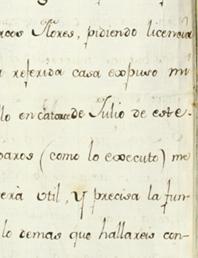 rcos Flores, pidiendo licencia
a referida casa expuso mi
llo en catorce de Julio de este
paxos (como lo executo) me
exà util, y precisa la fun-
lo demas que hallareis con-